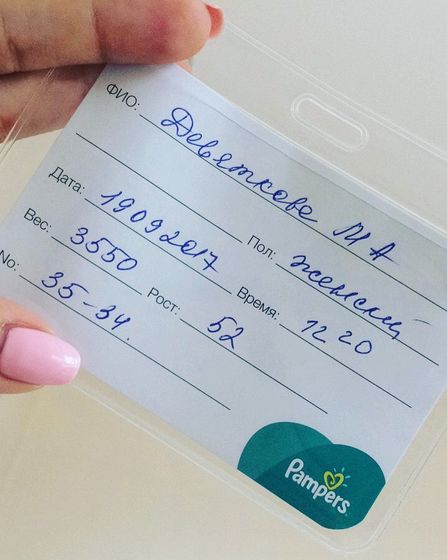 ФИО: Девяткова М А
Дата: 19092017 Пол: женский
Вес: 3550 Время: 12 20
No: 35-34. Рост: 52
Pampers